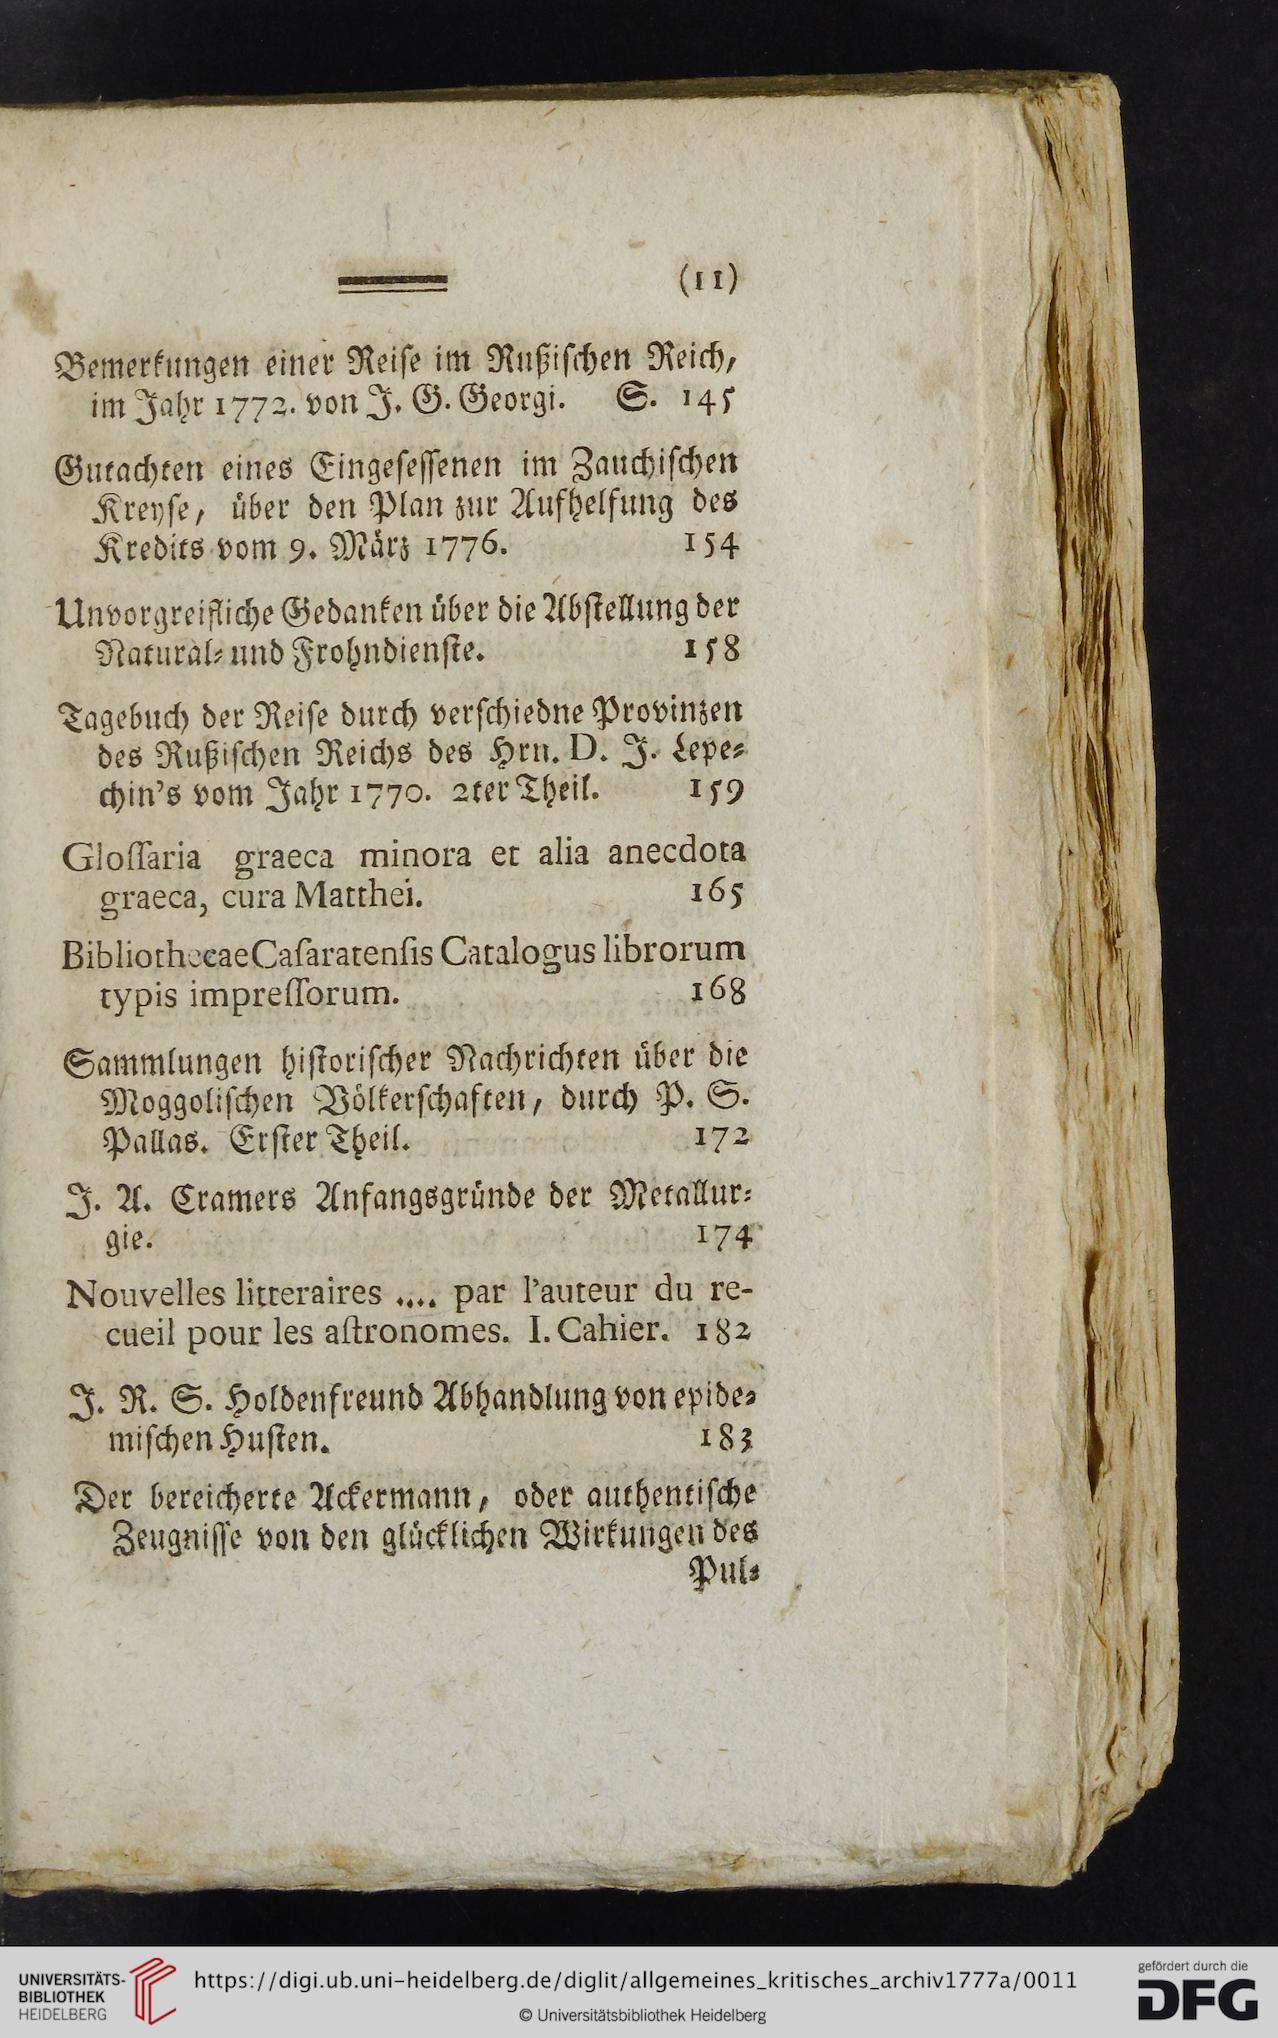 (11)
Bemerkungen einer Reiſe im Rußiſchen Reich,
im Jahr 1772. von J. G. Georgi. S. 145
Gutachten eines Eingeſeſſenen im Zauchiſchen
Kreyſe, über den Plan zur Aufhelfung des
Kredits vom 9. März 1776. 154
Unvorgreifliche Gedanken über die Abſtellung der
Natural- und Frohndienſte. 158
Tagebuch der Reiſe durch verſchiedne Provinzen
des Rußiſchen Reichs des Hrn. D. J. Lepe-
chin's vom Jahr 1770. 2ter Theil. 159
Gloſſaria graeca minora et alia anecdota
graeca, cura Matthei. 165
Bibliothecae Caſaratenſis Catalogus librorum
typis impreſſorum. 168
Sammlungen hiſtoriſcher Nachrichten über die
Moggoliſchen Völkerſchaften, durch P. S.
Pallas. Erſter Theil. 172
J. A. Cramers Anfangsgründe der Metallur-
gie. 174
Nouvelles litteraires .... par l'auteur du re-
cueil pour les aſtronomes. I. Cahier. 182
J. R. S. Holdenfreund Abhandlung von epide-
miſchen Huſten. 183
Der bereicherte Ackermann, oder authentiſche
Zeugniſſe von den glücklichen Wirkungen des
Pul-
UNIVERSITÄTS-
BIBLIOTHEK
HEIDELBERG
https://digi.ub.uni-heidelberg.de/diglit/allgemeines_kritisches_archiv1777a/0011
© Universitätsbibliothek Heidelberg
gefördert durch die
DFG